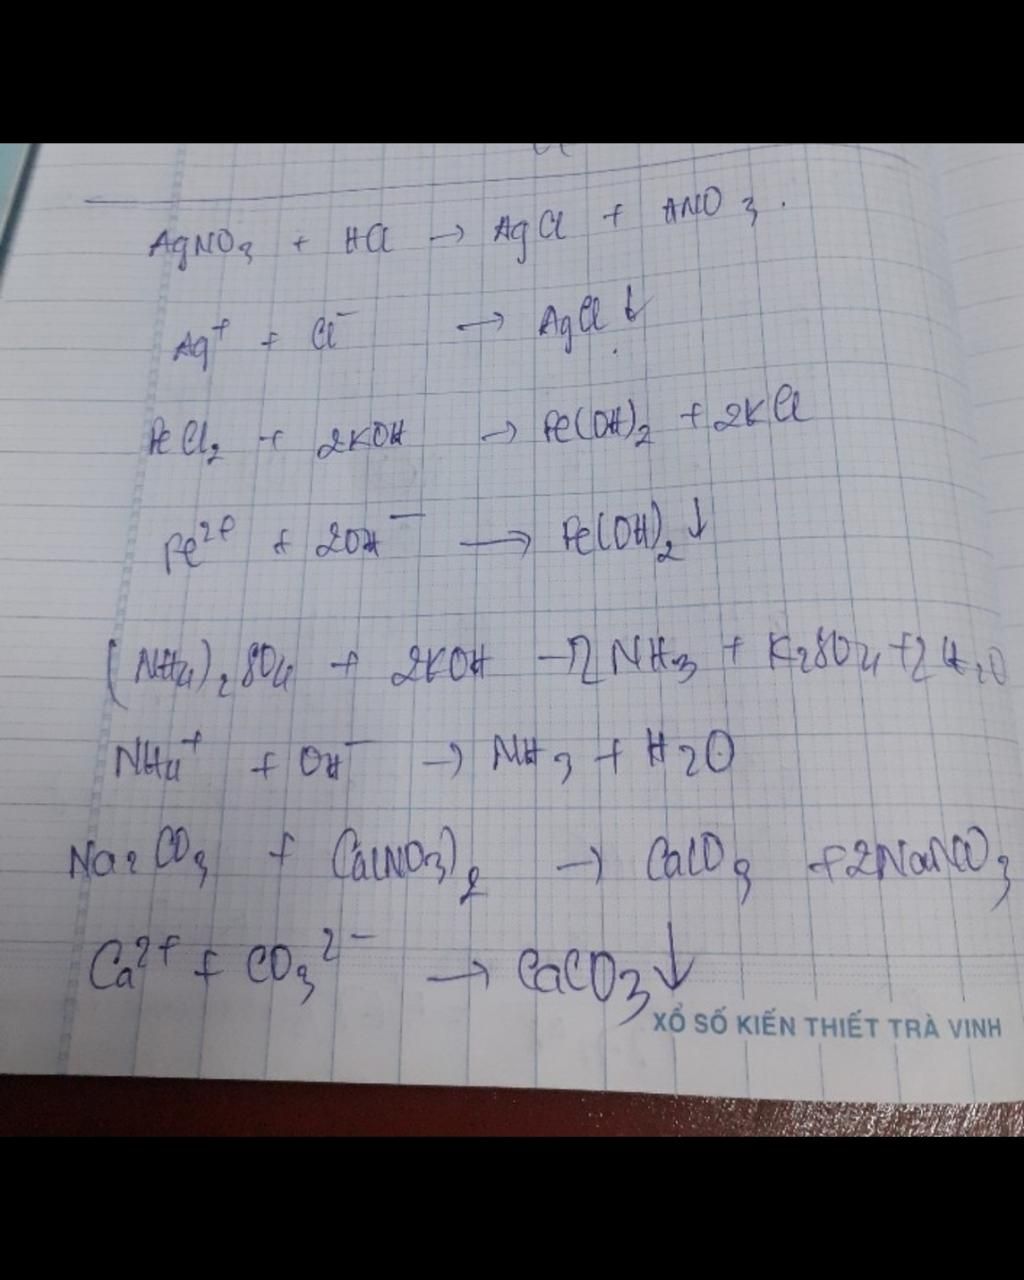 AgNO3 + HCl → AgCl + HNO3.
Ag+ + Cl- → AgCl ↓
FeCl2 + 2KOH → Fe(OH)2 + 2KCl
Fe2+ + 2OH- → Fe(OH)2 ↓
(NH4)2SO4 + 2KOH → 2NH3 + K2SO4 + 2H2O
NH4+ + OH- → NH3 + H2O
Na2CO3 + Ca(NO3)2 → CaCO3 + 2NaNO3
Ca2+ + CO3 2- → CaCO3 ↓
XỔ SỐ KIẾN THIẾT TRÀ VINH